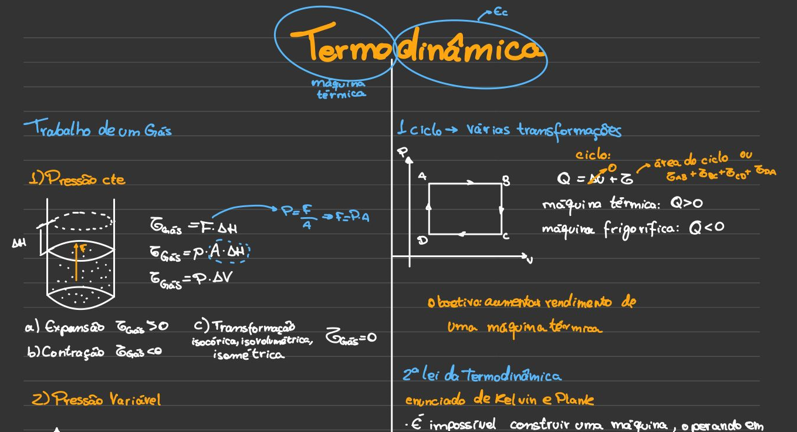 Termodinâmica
Ec
máquina
térmica
Trabalho de um Gás
1) Pressão cte
ΔH
F
𝜏Gás = F·ΔH
P = F/A → F = P.A
𝜏Gás = p·A·ΔH
𝜏Gás = P·ΔV
a) Expansão 𝜏Gás > 0
b) Contração 𝜏Gás < 0
c) Transformação
isocórica, isovolumétrica,
isométrica
𝜏Gás = 0
2) Pressão Variável
1 ciclo → várias transformações
P
A
B
D
C
V
ciclo:
0
Q = ΔU + 𝜏
área do ciclo ou
𝜏AB + 𝜏BC + 𝜏CD + 𝜏DA
máquina térmica: Q>0
máquina frigorífica: Q<0
Objetivo: aumentar rendimento de
uma máquina térmica
2ª lei da Termodinâmica
enunciado de Kelvin e Plank
· É impossível construir uma máquina, operando em